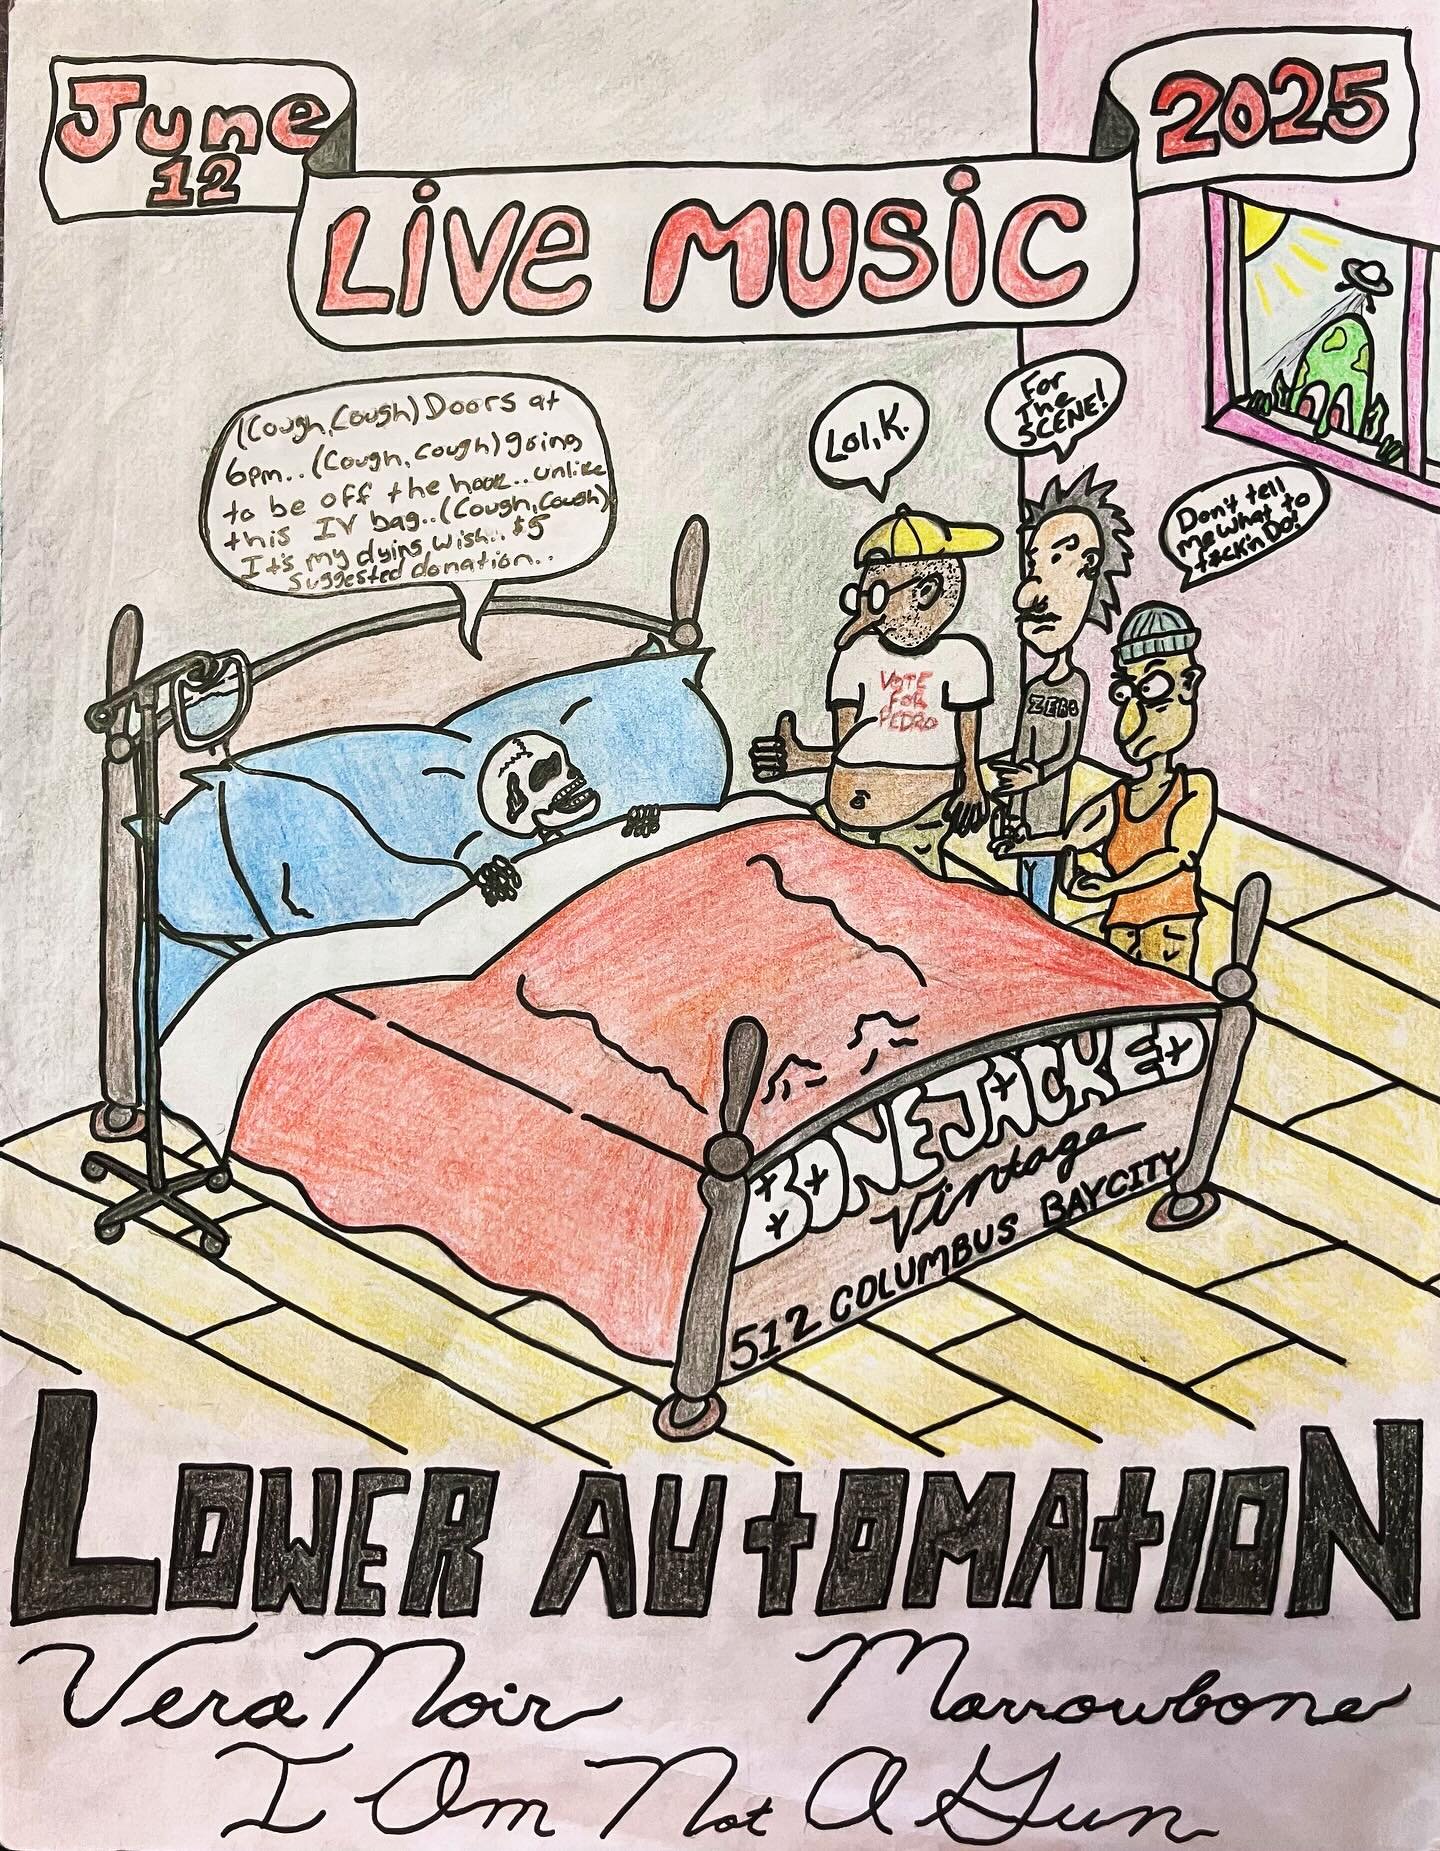 June
12
2025
Live Music
(Cough, Cough) Doors at
6pm.. (Cough, Cough) going
to be off the hook.. unlike
this IV bag.. (Cough, Cough)
It's my dying wish.. $5
suggested donation..
Lol, K.
For
The
SCENE!
Don't tell
me what to
f*ck'n Do!
VOTE
FOR
PEDRO
BONEJACKED
Vintage
512 COLUMBUS BAYCITY
LOWER AUTOMATION
Vera Noir
Marrowbone
I Am Not A Gun